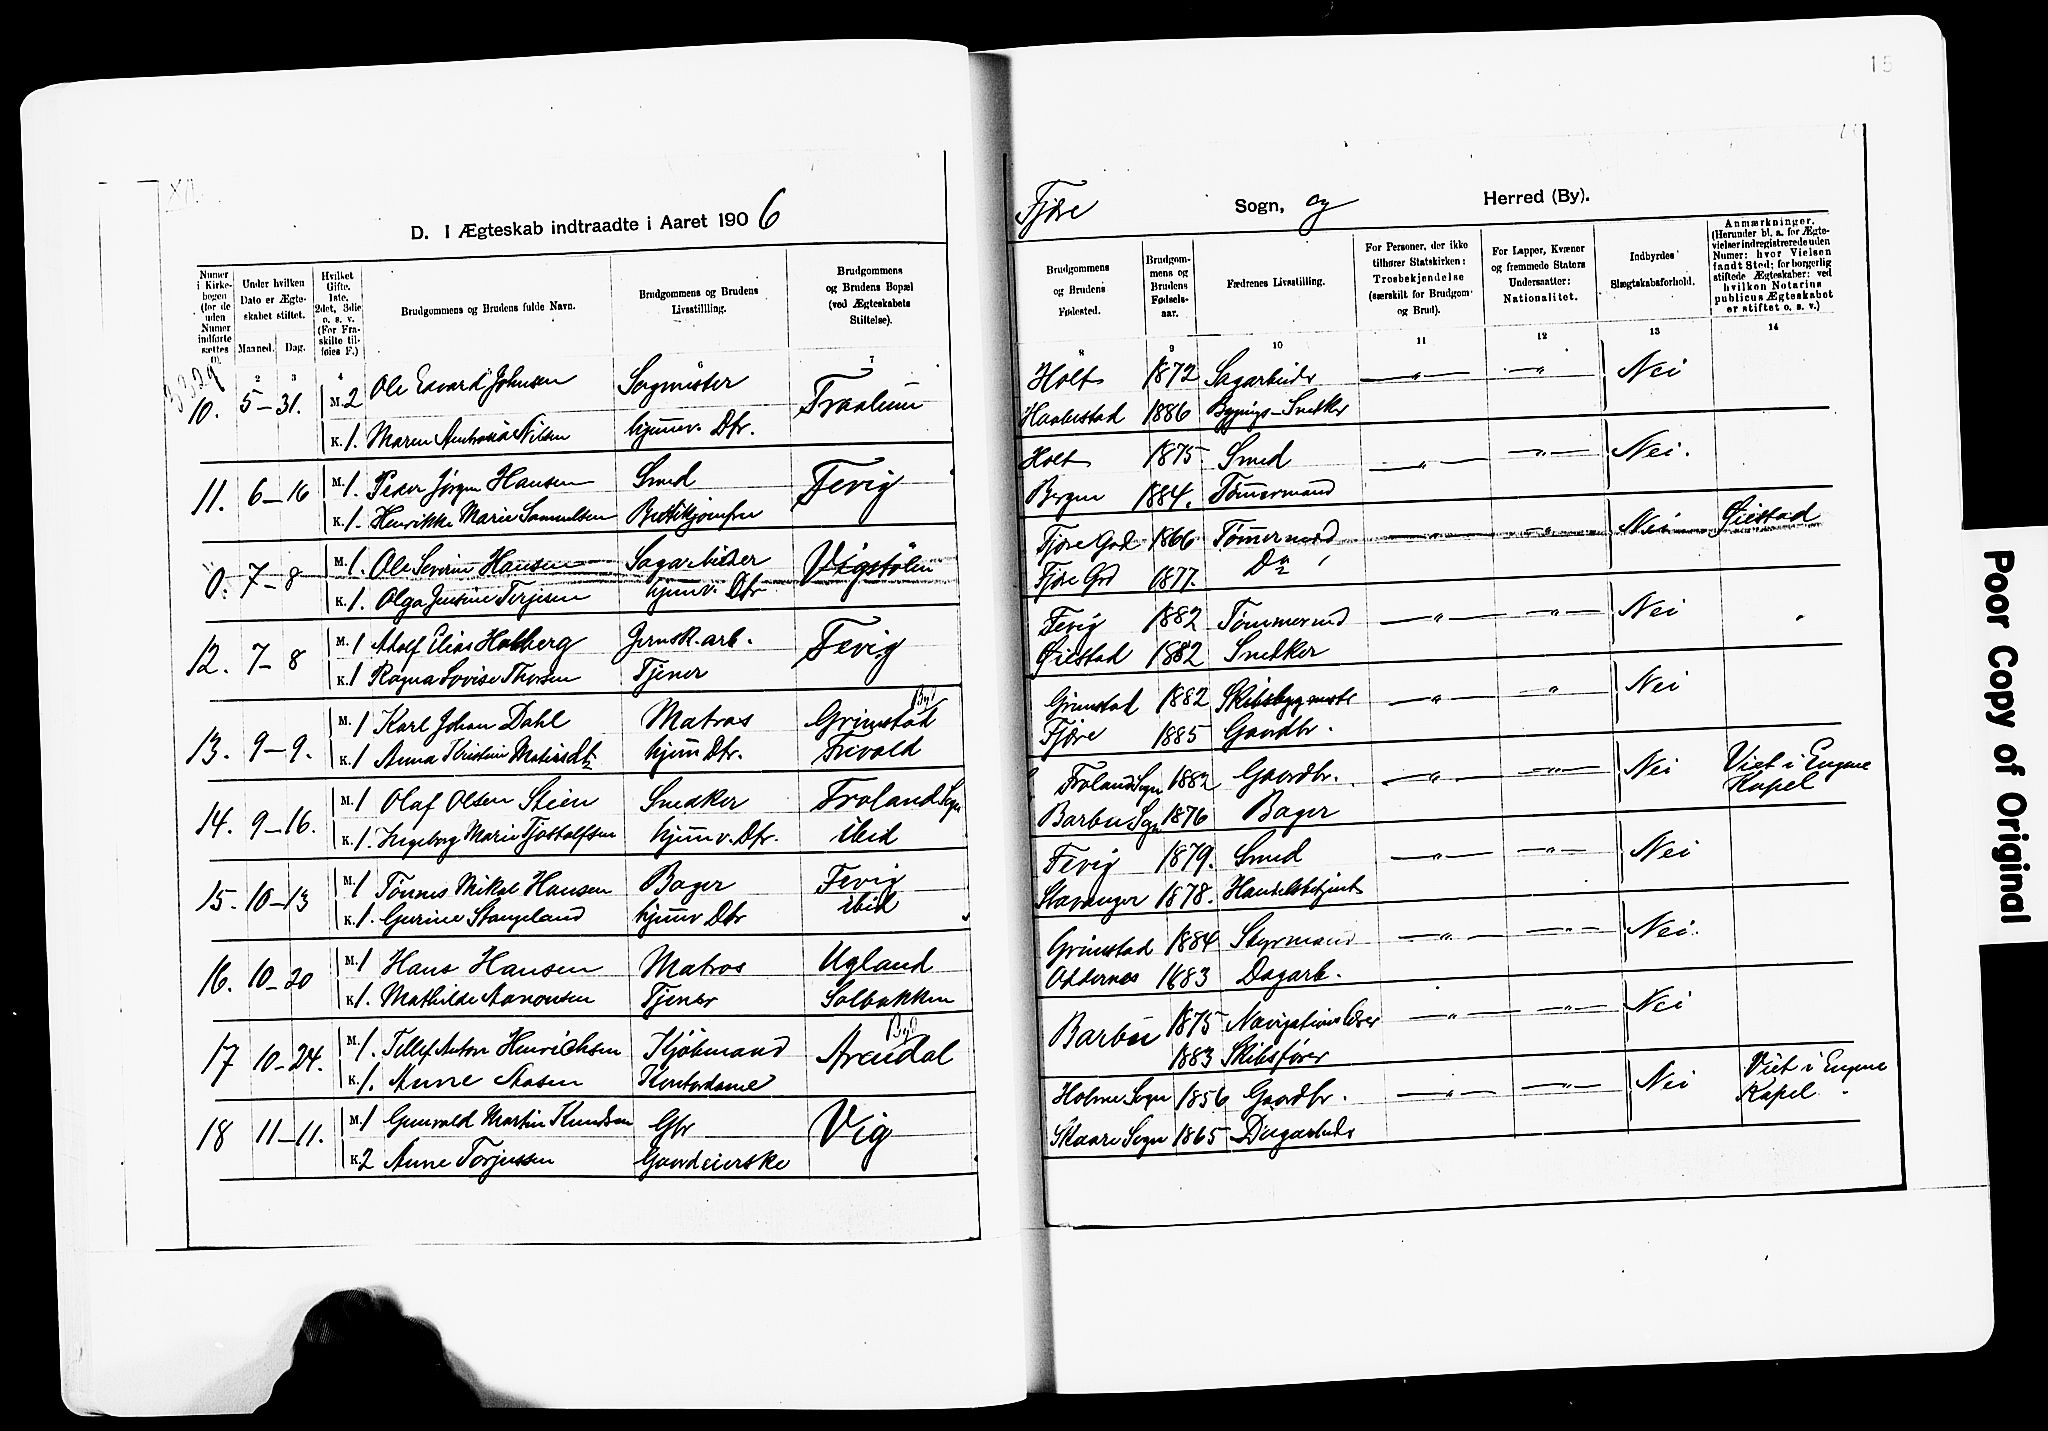 15
D. I Ægteskab indtraadte i Aaret 1906
Fjære Sogn, og Herred (By).
Numer i Kirkebogen (for de uden Numer indførte sættes 0).
Under hvilken Dato er Ægteskabet stiftet.
Maaned. Dag.
Hvilket Gifte. 1ste, 2det, 3die o. s. v. (For Fraskilte tilføies F.)
Brudgommens og Brudens fulde Navn.
Brudgommens og Brudens Livsstilling.
Brudgommens og Brudens Bopæl (ved Ægteskabets Stiftelse).
Brudgommens og Brudens Fødested.
Brudgommens og Brudens Fødselsaar.
Fædrenes Livsstilling.
For Personer, der ikke tilhører Statskirken: Trosbekjendelse (særskilt for Brudgom og Brud).
For Lapper, Kvæner og fremmede Staters Undersaatter: Nationalitet.
Indbyrdes Slægtskabsforhold.
Anmærkninger. (Herunder bl. a. for Ægtevielser indregistrerede uden Numer: hvor Vielsen fandt Sted; for borgerlig stiftede Ægteskaber: ved hvilken Notarius publicus Ægteskabet er stiftet o. s. v.)
2 3 4 6 7 8 9 10 11 12 13 14
10. 5–31. M. 2 Ole Edvard Johnsen Sagmester Traalum Holt 1872 Sagarbeider — " — — " — Nei
K. 1. Maren Nilsen hjemmev. Dtr. 1886 Bygnings-Snedker
11. 6–16 M. 1. Peder Jørgen Hansen Smed Fevig Holt 1875 Smed — " — — " — Nei.
K. 1. Henrikke Marie Samuelsen Butikjomfru Bergen 1884. Tømmermand
0. 7–8 M. 1. Ole Severin Hansen Sagarbeider Vigstølen Fjære Grd 1866 Tømmermand — " — — " — Nei Øiestad
K. 1. Olga Jensine Terjesen hjemmev. Dtr Fjære Grd 1877. Do
12. 7–8 M. 1 Adolf Elias Holberg Jernsk. arb. Fevig Fevig 1882 Tømmermd — " — — " — Nei
K. 1 Ragna Lovise Thorsen Tjener Øiestad 1882 Snedker
13. 9–9. M. 1 Karl Johan Dahl Matros Grimstad By Grimstad 1882 Skibsbygmstr — " — — " — Nei
K. 1 Anna Kristine hjem Dtr. Frivold Fjære 1885 Gaardbr.
14. 9–16. M. 1 Olaf Olsen Stien Snedker Froland Sogn Froland Sogn 1882 Gaardbr. — " — — " — Nei Viet i Eugene Kapel
K. 1. Ingeborg Marie Tjostolfsen hjemmev. Dtr. ibid Barbu Sogn 1876 Bager
15. 10–13 M. 1 Tønnes Mikal Hansen Bager Fevig Fevig 1879. Smed — " — — " — Nei
K. 1. Gurine Stangeland hjemmev Dtr ibid Stavanger 1878. Handelsbetjent
16. 10–20 M. 1 Hans Hansen Matros Ugland Grimstad 1884 Styrmand — " — — " — Nei.
K. 1. Mathilde Aanonsen Tjener Solbakken Oddernes 1883 Dagarb.
17 10–24. M. 1. Tellef Anton Henrichsen Kjøbmand Arendal By Barbu 1875 Navigationslærer — " — — " — Nei
K. 1. Anne Aasen Kontordame 1883 Skibsfører
18 11–11. M. 1 Gunvald Martin Knudsen Gbr Vig Holme Sogn 1856 Gaardbr. — " — — " — Nei Viet i Eugene Kapel
K. 2 Anne Torjussen Gaardeierske Skaare Sogn 1865 Dagarbeider
Poor Copy of Original